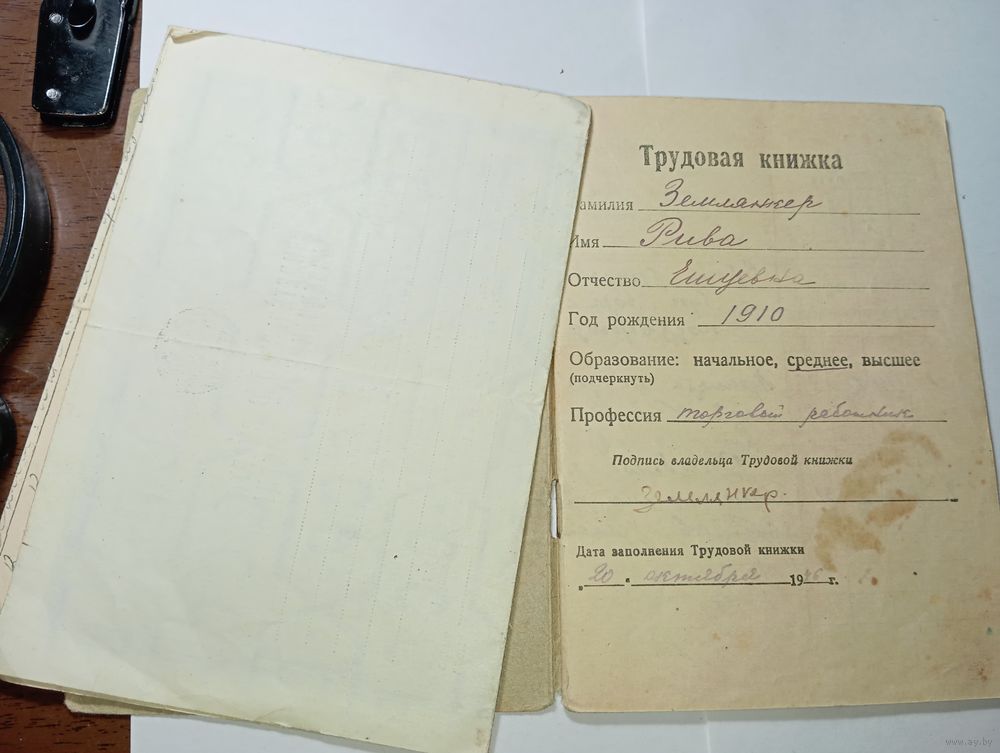 Трудовая книжка
амилия Землянкер
Имя Рива
Отчество
Год рождения 1910
Образование: начальное, среднее, высшее
(подчеркнуть)
Профессия торговый работник
Подпись владельца Трудовой книжки
Землянкер.
Дата заполнения Трудовой книжки
„20 " октября 1946 г.
www.ay.by